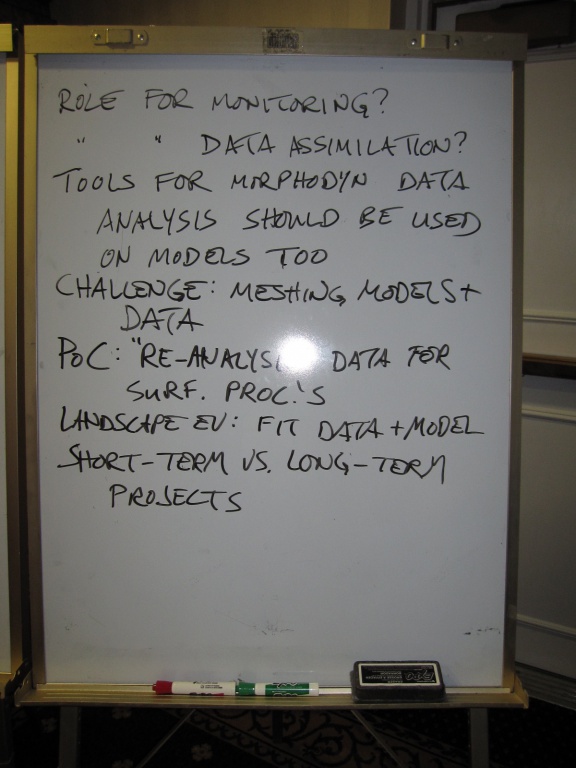 ROLE FOR MONITORING?
" " DATA ASSIMILATION?
TOOLS FOR MORPHODYN DATA
ANALYSIS SHOULD BE USED
ON MODELS TOO
CHALLENGE: MESHING MODELS +
DATA
POC: "RE-ANALYSIS DATA FOR
SURF. PROC.'S
LANDSCAPE EV: FIT DATA + MODEL
SHORT-TERM VS. LONG-TERM
PROJECTS
EXPO